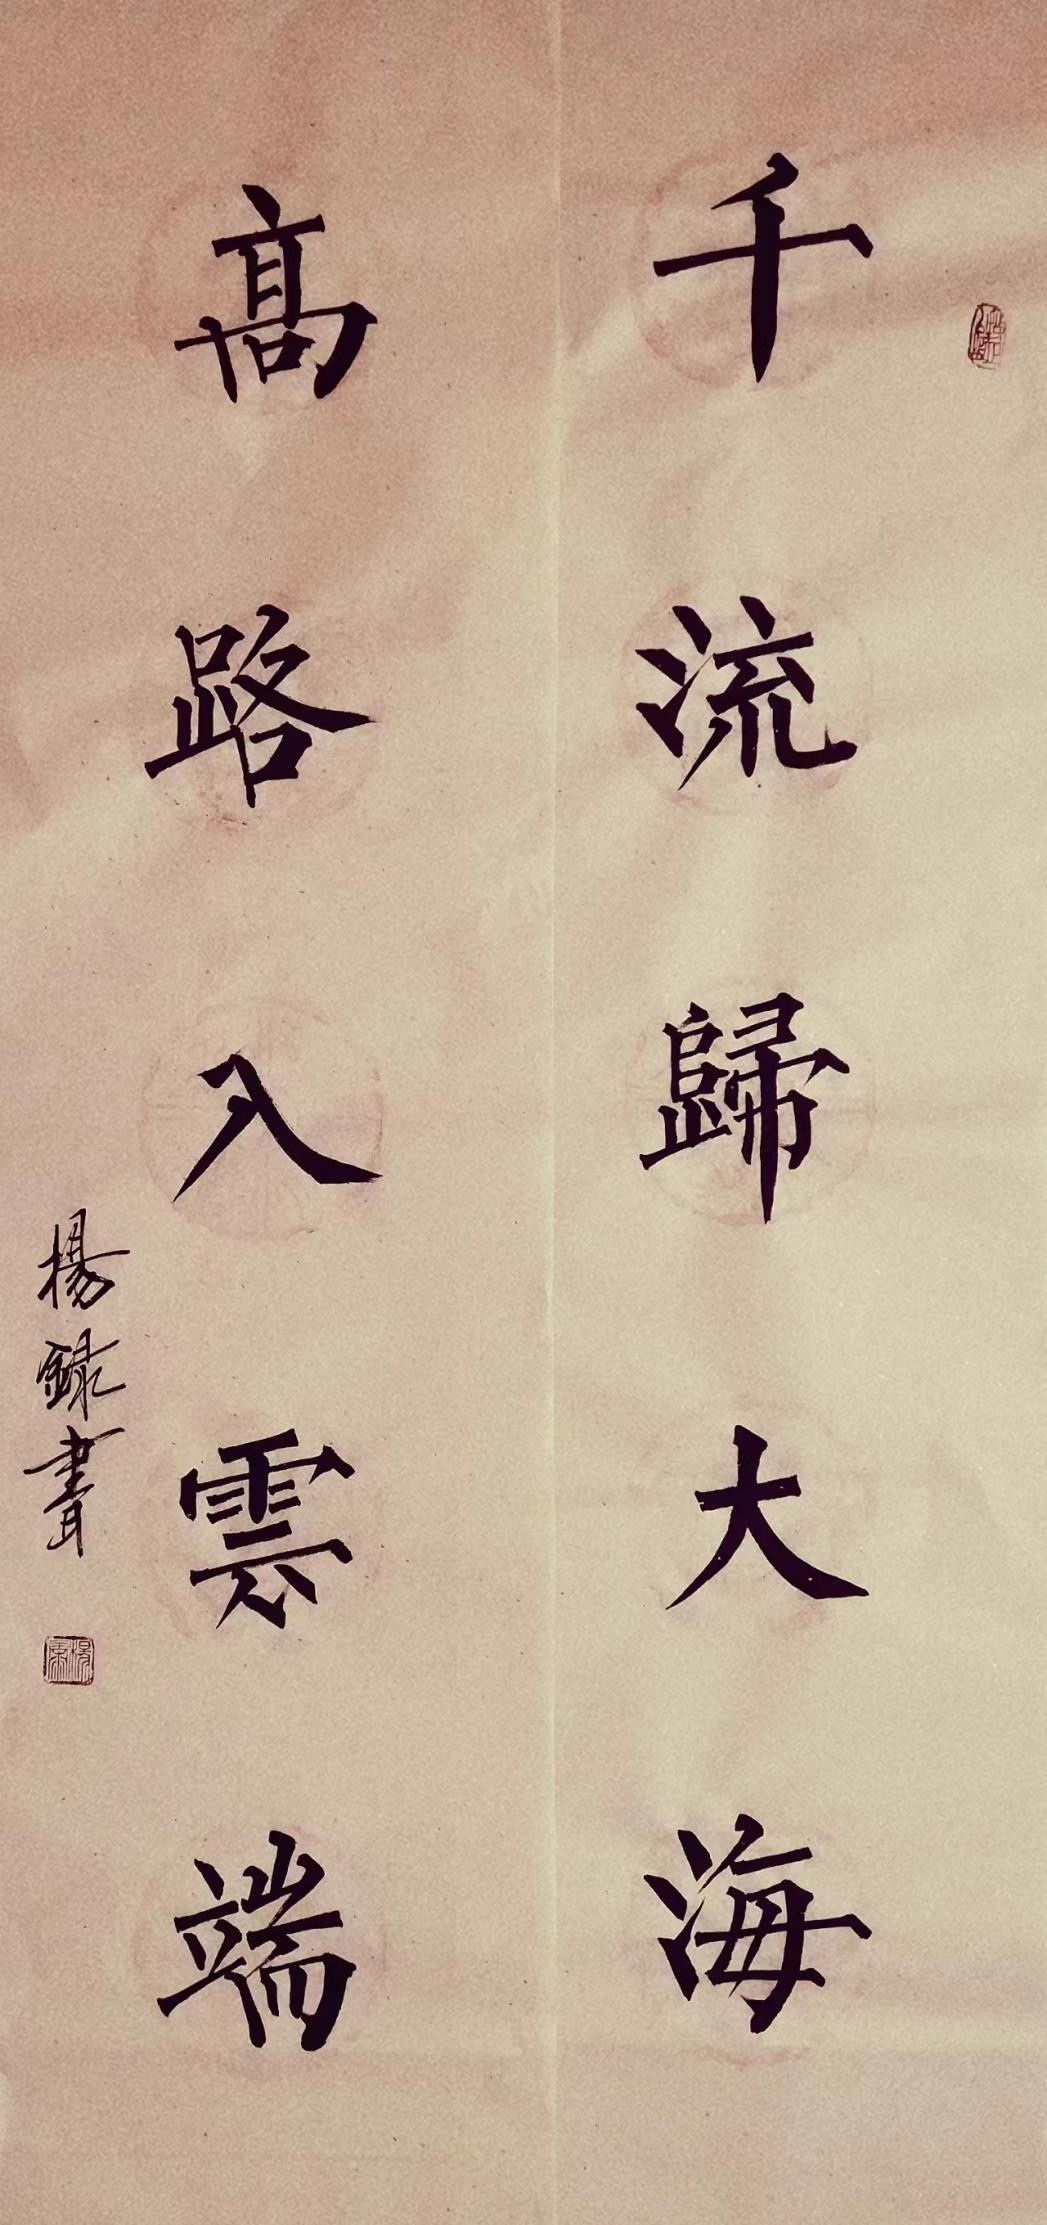 千流歸大海
高路入雲端
楊録書